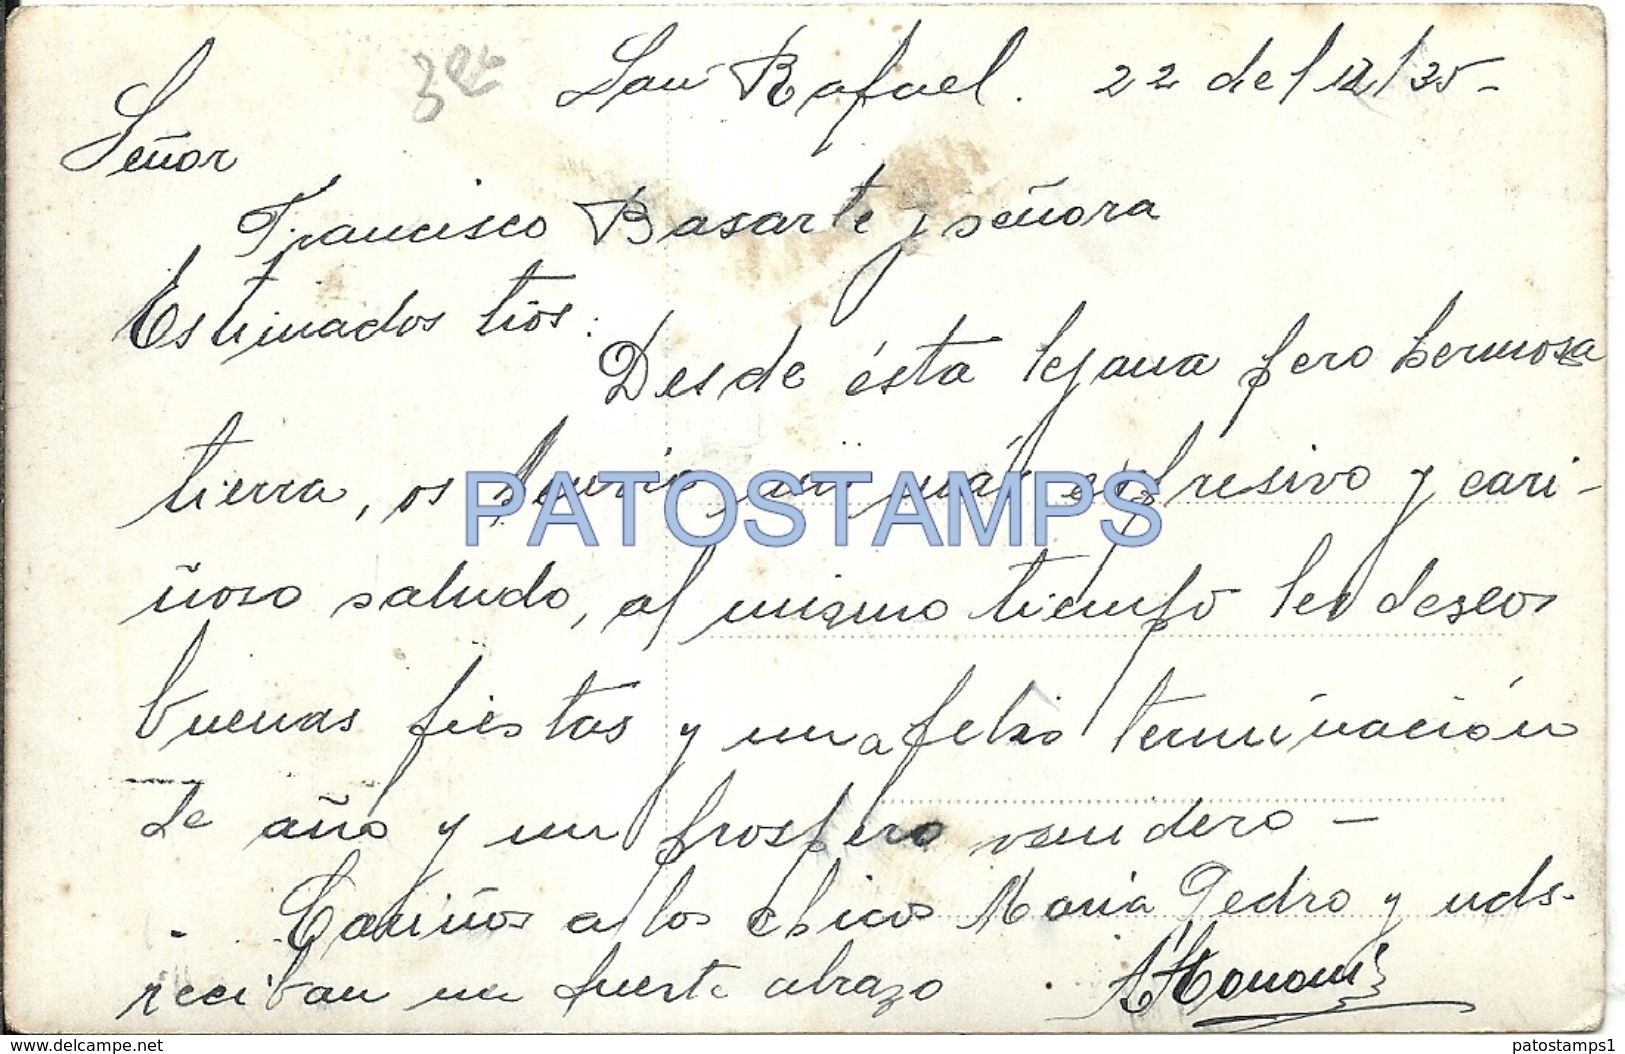 3et
San Rafael. 22 de/12/35-
Señor
Francisco Basarte y señora
Estimados tios:
Desde ésta lejana pero hermosa
tierra, os envio mi más expresivo y cari-
ñoso saludo, al mismo tiempo les deseos
buenas fiestas y una felis terminación
de año y un prospero venidero -
Cariños a los chicos Maria Pedro y uds.
reciban un fuerte abrazo
PATOSTAMPS
www.delcampe.net
patostamps1